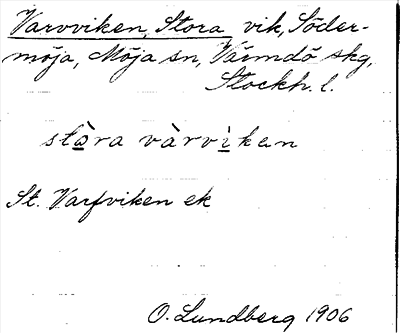 Varvviken, Stora vik, Söder-
möja, Möja sn, Värmdö skg,
Stockh. l.
stòra vàrvìken
St. Varfviken ek
O. Lundberg 1906